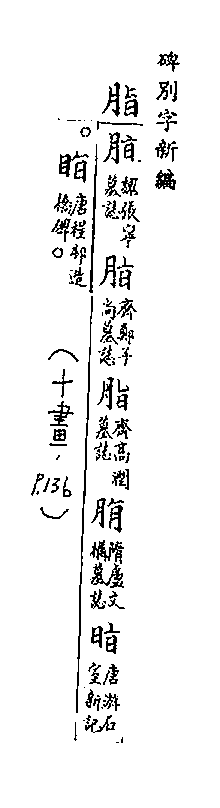 碑別字新編
脂
脂 魏張寧墓誌
脂 齊鄭子尚墓誌
脂 齊高潤墓誌
隋盧文構墓誌
唐游石室新記
唐程邨造橋碑。
(十畫,P.136)